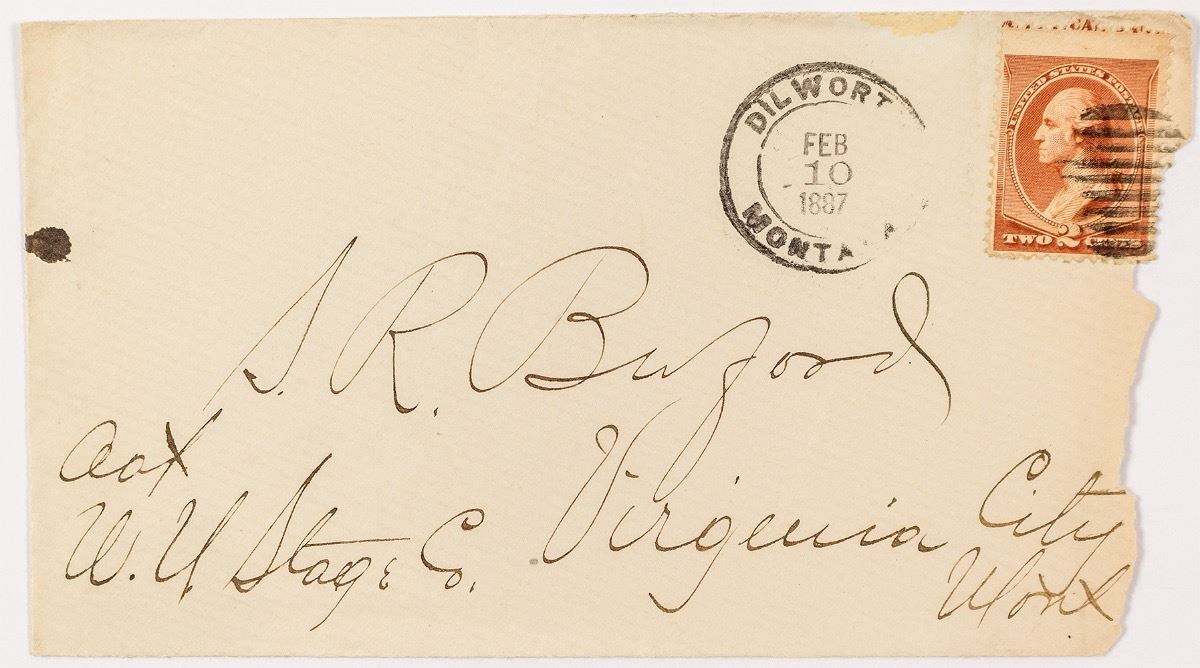 DILWORT
FEB
10
1887
MONTA
UNITED STATES POSTAGE
TWO 2 CENTS
S. R. Buford
Virginia City
Mont
W. U Stage Co.